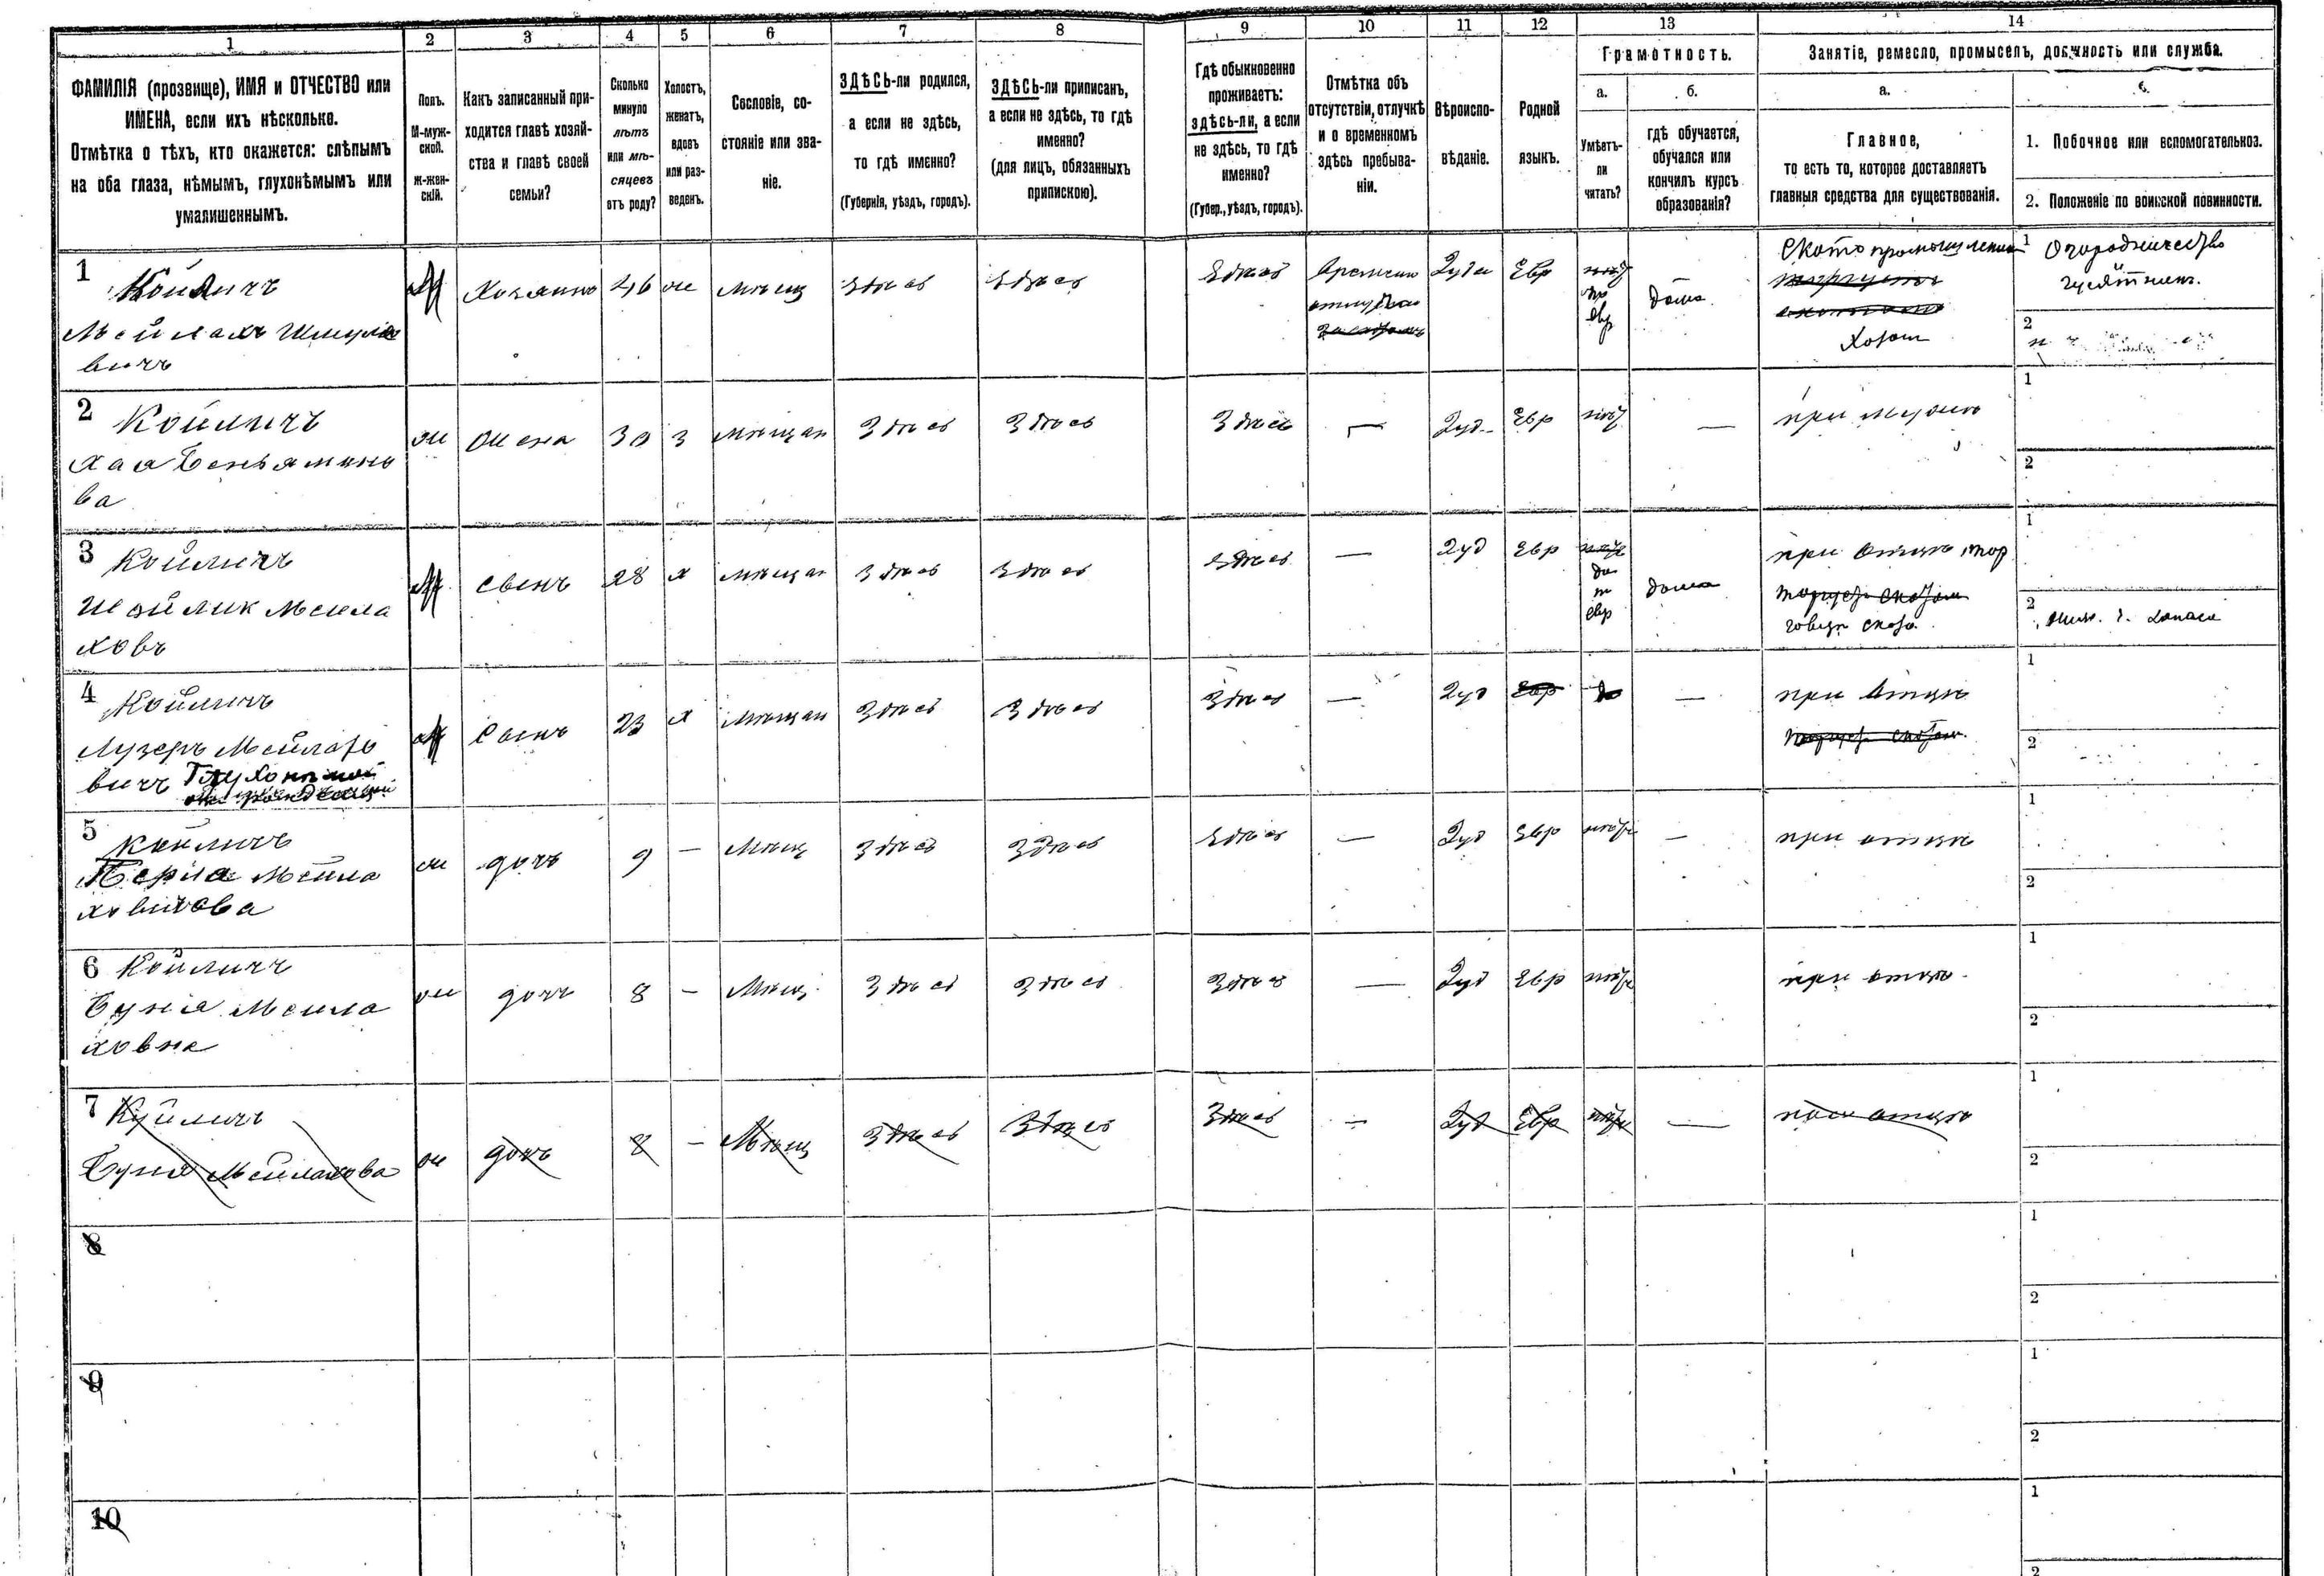 1 2 3 4 5 6 7 8 9 10 11 12 13 14
ФАМИЛІЯ (прозвище), ИМЯ и ОТЧЕСТВО или
ИМЕНА, если ихъ нѣсколько.
Отмѣтка о тѣхъ, кто окажется: слѣпымъ
на оба глаза, нѣмымъ, глухонѣмымъ или
умалишеннымъ.
Полъ.
М-муж-
ской.
Ж-жен-
скій.
Какъ записанный при-
ходится главѣ хозяй-
ства и главѣ своей
семьи?
Сколько
минуло
лѣтъ
или мѣ-
сяцевъ
отъ роду?
Холостъ,
женатъ,
вдовъ
или раз-
веденъ.
Сословіе, со-
стояніе или зва-
ніе.
ЗДѢСЬ-ли родился,
а если не здѣсь,
то гдѣ именно?
(Губернія, уѣздъ, городъ).
ЗДѢСЬ-ли приписанъ,
а если не здѣсь, то гдѣ
именно?
(для лицъ, обязанныхъ
припискою).
Гдѣ обыкновенно
проживаетъ:
здѣсь-ли, а если
не здѣсь, то гдѣ
именно?
(Губер., уѣздъ, городъ).
Отмѣтка объ
отсутствіи, отлучкѣ
и о временномъ
здѣсь пребыва-
ніи.
Вѣроиспо-
вѣданіе.
Родной
языкъ.
Грамотность.
а.
Умѣетъ-
ли
читать?
б.
гдѣ обучается,
обучался или
кончилъ курсъ
образованія?
Занятіе, ремесло, промыселъ, должность или служба.
а.
Главное,
то есть то, которое доставляетъ
главныя средства для существованія.
б.
1. Побочное или вспомогательное.
2. Положеніе по воинской повинности.
1 Койличъ
Мейлахъ Шмуле
вичъ
М Хозяинъ 46 ж мѣщ Здѣсь Здѣсь
Здѣсь Временно
Іуде Евр
да
евр
дома
Скотопромышлен
1 Огородничество
2
2 Койличъ
Хая Беньямино
ва
ж жена 30 з мѣщан Здѣсь Здѣсь
Здѣсь — Іуд Евр нѣт — при мужѣ
1
2
3 Койличъ
Шойлик Мейла
ховъ
М Сынъ 28 х мѣщан Здѣсь Здѣсь
Здѣсь — Іуд Евр
да
евр
дома
при отцѣ тор
говля скота
1
2
4 Койличъ
Лузеръ Мейлахо
вичъ Глухонѣмой
отъ рожденія
М Сынъ 23 х мѣщан Здѣсь Здѣсь
Здѣсь — Іуд Евр — при отцѣ
торгуетъ скотом
1
2
5 Койличъ
Перла Мейла
ховичова
ж дочь 9 — мѣщ Здѣсь Здѣсь
Здѣсь — Іуд Евр нѣт — при отцѣ
1
2
6 Койличъ
Бунія Мейла
ховна
ж дочь 8 — Мѣщ Здѣсь Здѣсь
Здѣсь — Іуд Евр нѣт при отцѣ
1
2
7 Куйличъ
Буня Мейлахова
ж дочь 8 — Мѣщ Здѣсь Здѣсь
Здѣсь — Іуд Евр нѣт — при отцѣ
1
2
8
1
2
9
1
2
10
1
2